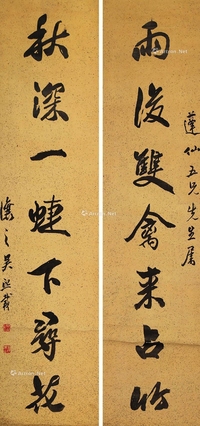 蓮仙五兄先生屬
雨後雙禽來占竹
秋深一蜨下尋花
讓之吳熙載